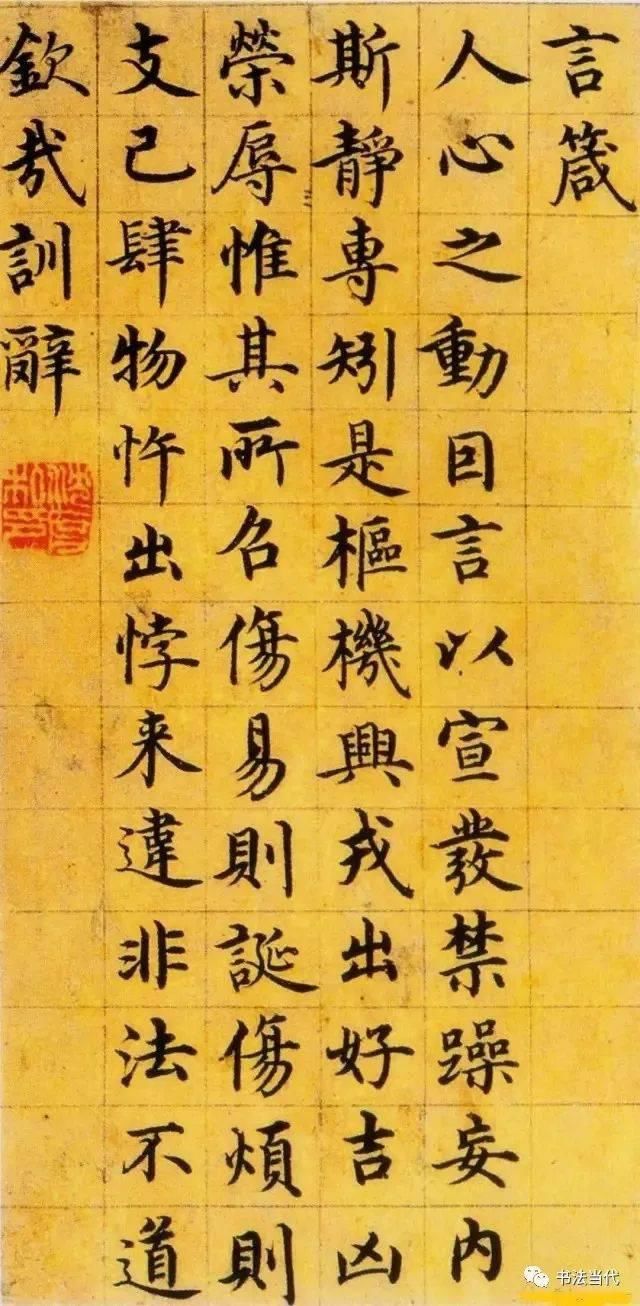 言箴
人心之動因言以宣發禁躁妄内
斯靜專矧是樞機興戎出好吉凶
榮辱惟其所召傷易則誕傷煩則
支己肆物忤出悖来違非法不道
欽哉訓辭
书法当代